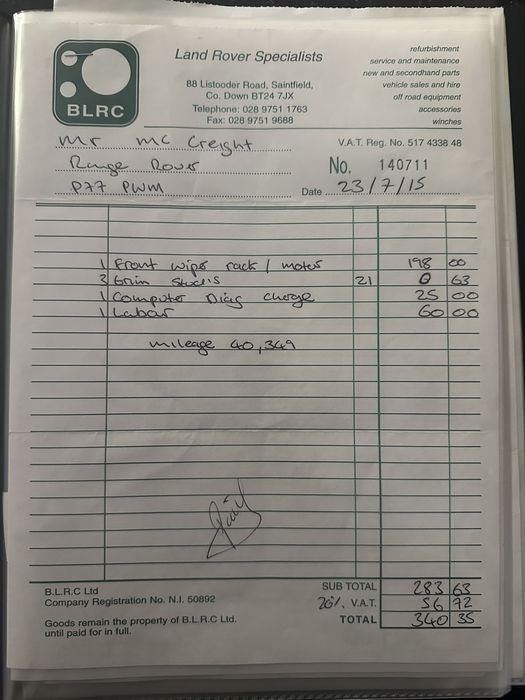 Land Rover Specialists
88 Listooder Road, Saintfield,
Co. Down BT24 7JX
Telephone: 028 9751 1763
Fax: 028 9751 9688
refurbishment
service and maintenance
new and secondhand parts
vehicle sales and hire
off road equipment
accessories
winches
BLRC
Mr Mc Creight
Range Rover
P77 PWM
V.A.T. Reg. No. 517 4338 48
No. 140711
Date 23/7/15
1 Front wiper rack / motor 198 00
3 6mm Studs 21 0 63
1 Computer Diag charge 25 00
1 Labour 60 00
mileage 40,349
B.L.R.C Ltd
Company Registration No. N.I. 50892
Goods remain the property of B.L.R.C Ltd.
until paid for in full.
SUB TOTAL 283 63
20% V.A.T. 56 72
TOTAL 340 35